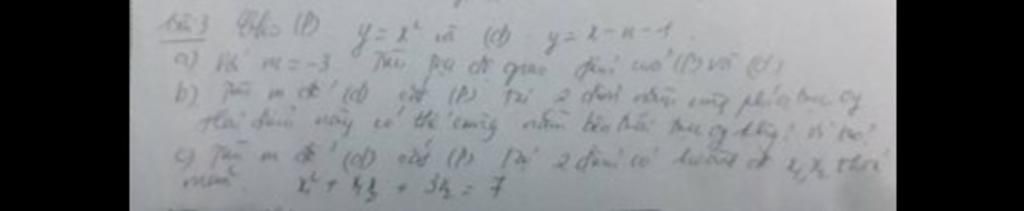 Bài 3 Cho (P) y = x² và (d) y = x - m - 1
a) Với m = -3 Tìm tọa độ giao điểm của (P) và (d)
b) Tìm m để (d) cắt (P) tại 2 điểm nằm cùng phía trục oy
Hai điểm này có thể cùng nằm bên trái trục oy không? Vì sao?
c) Tìm m để (d) cắt (P) tại 2 điểm có hoành độ x₁, x₂ thỏa
mãn x₁² + x₁x₂ + 3x₂ = 7